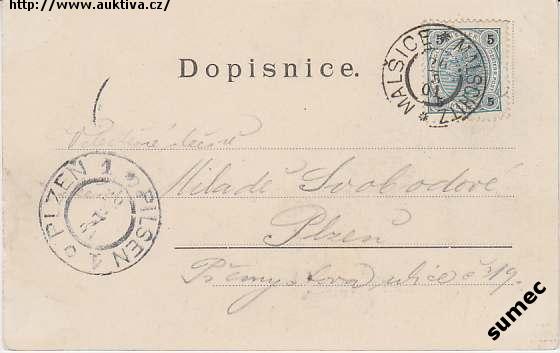 http://www.auktiva.cz/
Dopisnice.
* MALŠICE * MALSCHITZ
5 5
5 5
slečně
PLZEN 1 PILSEN 1
Miladě Svobodové
Plzeň
Přemyslova ulice č. 19.
sumec